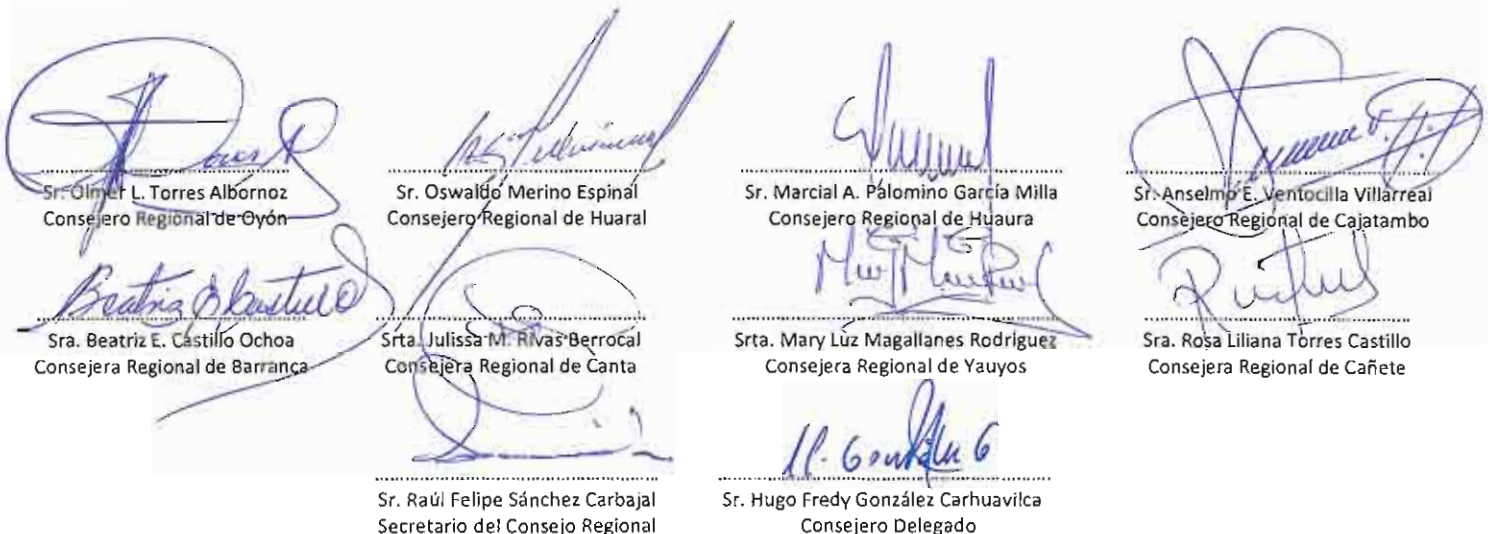 Sr. Olmer L. Torres Albornoz
Consejero Regional de Oyón
Sr. Oswaldo Merino Espinal
Consejero Regional de Huaral
Sr. Marcial A. Palomino García Milla
Consejero Regional de Huaura
Sr. Anselmo E. Ventocilla Villarreal
Consejero Regional de Cajatambo
Beatriz E Castillo O
Sra. Beatriz E. Castillo Ochoa
Consejera Regional de Barranca
Srta. Julissa M. Rivas Berrocal
Consejera Regional de Canta
Srta. Mary Luz Magallanes Rodriguez
Consejera Regional de Yauyos
Sra. Rosa Liliana Torres Castillo
Consejera Regional de Cañete
Sr. Raúl Felipe Sánchez Carbajal
Secretario del Consejo Regional
Sr. Hugo Fredy González Carhuavilca
Consejero Delegado